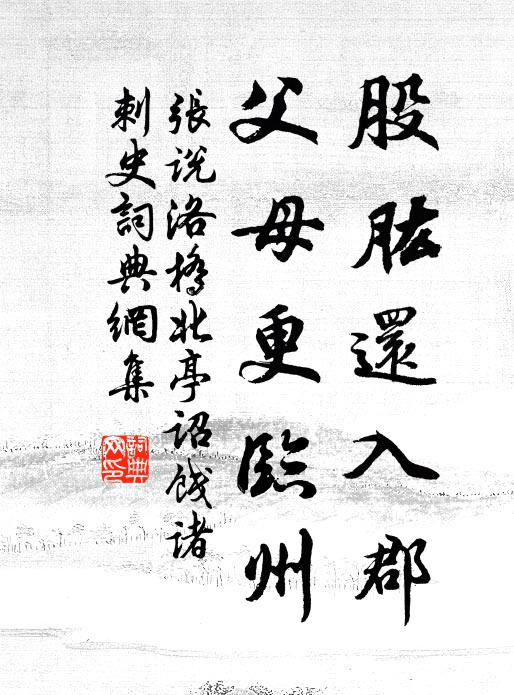 股肱還入郡
父母更臨州
張說洛橋北亭詔餞諸
刺史詞典網集
詞典网印